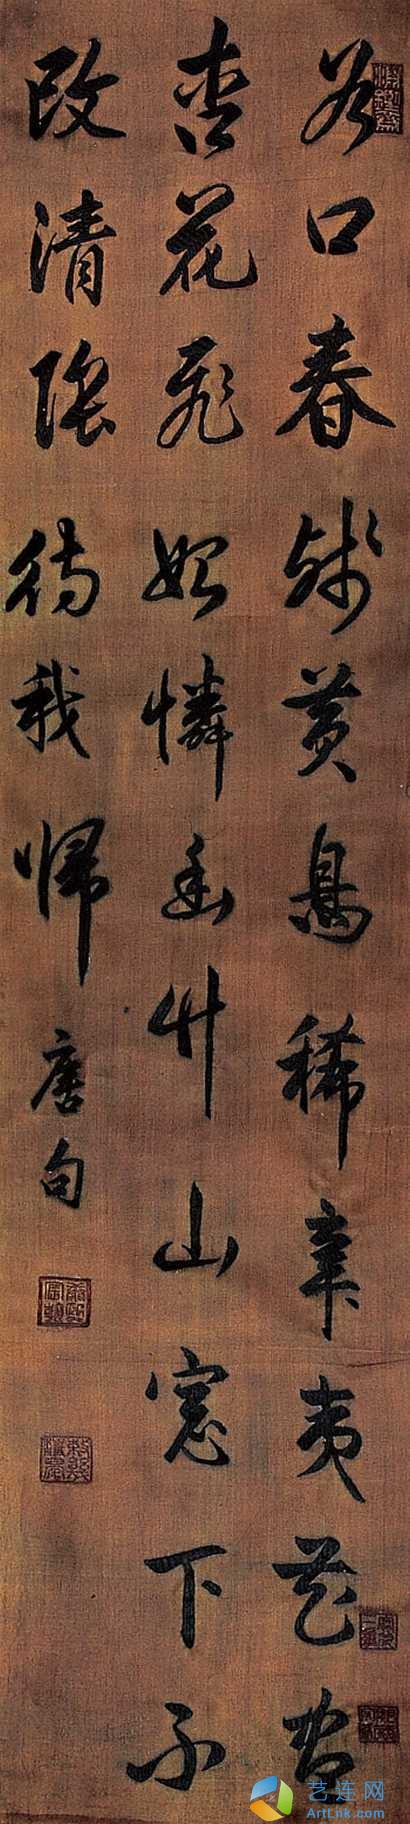 谷口春殘黃鳥稀辛夷花盡
杏花飛始憐幽竹山窗下不
改清陰待我歸
唐句
艺连网
ArtLink.com